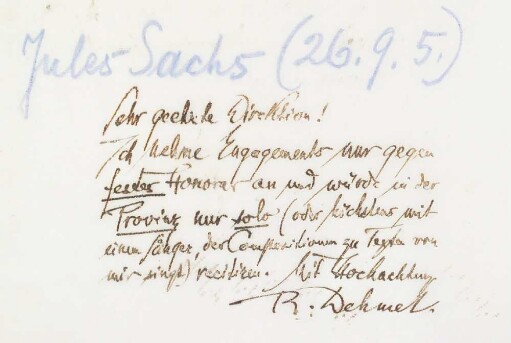 Jules Sachs (26.9.5.)
Sehr geehrte Direktion!
Ich nehme Engagements nur gegen
festes Honorar an und würde in der
Provinz nur solo (oder höchstens mit
einem Sänger, der Compositionen zu Texten von
mir singt) recitiren. Mit Hochachtung
R. Dehmel.